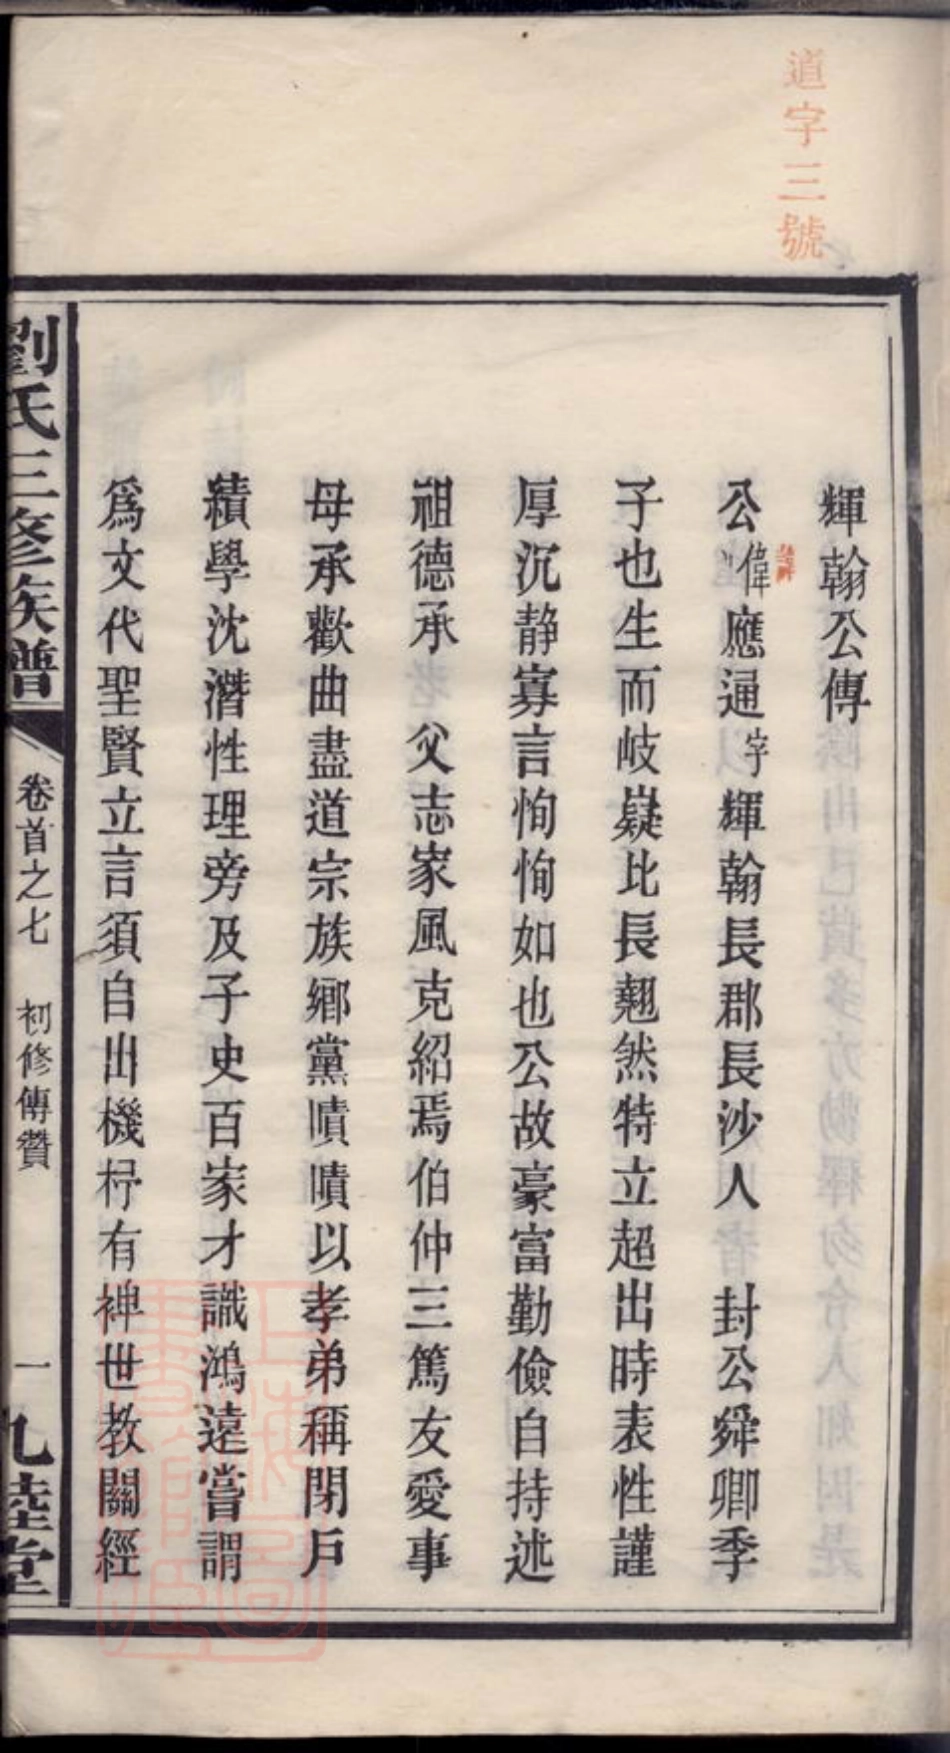 道字三號
輝翰公傳
公偉應通字輝翰長郡長沙人 封公舜卿季
子也生而岐嶷比長翹然特立超出時表性謹
厚沉静寡言恂恂如也公故豪富勤儉自持述
祖德承 父志家風克紹焉伯仲三篤友愛事
母承歡曲盡道宗族鄉黨嘖嘖以孝弟稱閉戶
績學沈潛性理旁及子史百家才識鴻遠嘗謂
爲文代聖賢立言須自出機杼有裨世教關經
劉氏三修族譜
卷首之七 初修傳贊
一
九陸堂